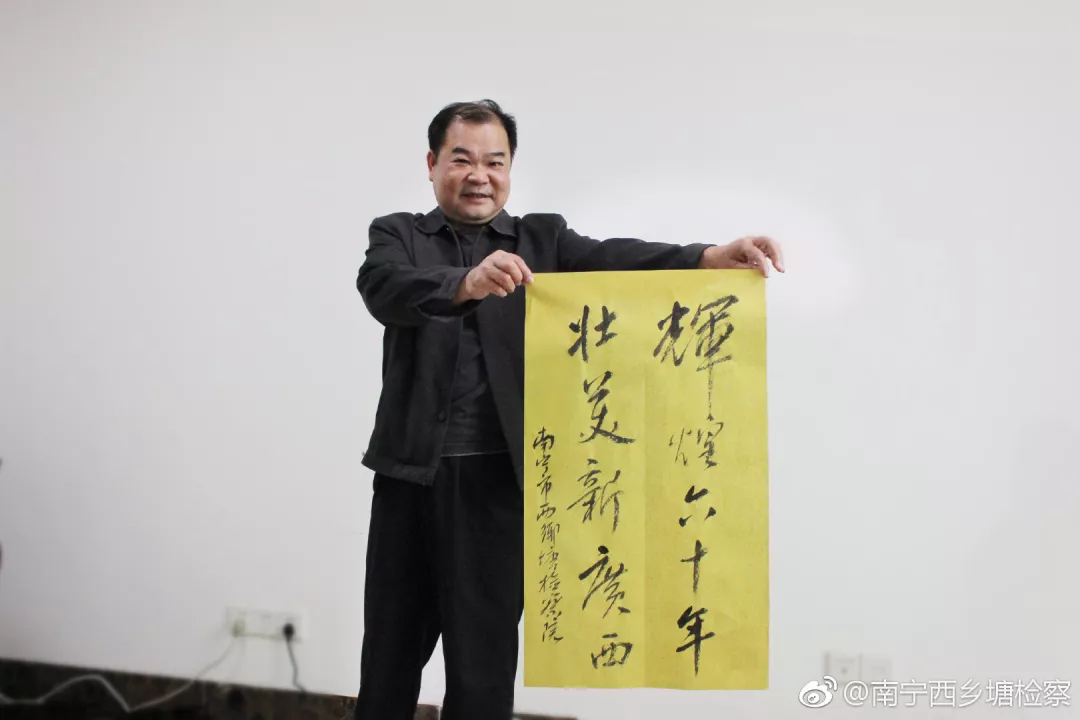 輝煌六十年
壮美新廣西
南宁市西鄉塘检察院
@南宁西乡塘检察